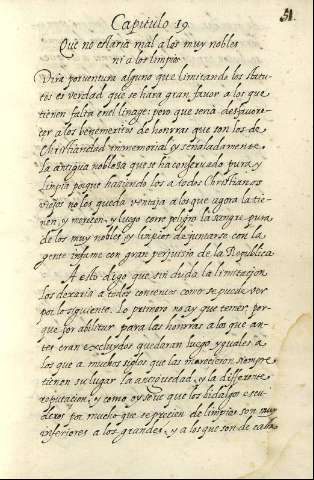 51.
Capitulo 19.
Que no estaria mal a los muy nobles
ni a los limpios
Dira por ventura alguno que limitando los statu-
tos es verdad que se hara gran favor a los que
tienen falta en el linage: pero que seria desfavore-
cer a los benemeritos de honrras que son los de
christiandad immemorial y señaladamente
la antigua nobleza que se ha conservado pura y
limpia porque haziendo los a todos christianos
viejos no les queda ventaja a los que agora la tie-
nen, y merecen, y luego corre peligro la sangre pura
de los muy nobles y limpios de juntarse con la
gente infame con gran perjuisio de la Republica
A esto digo que sin duda la limitacion
los dexaria a todos contentos como se puede ver
por lo siguiente. Lo primero no ay que temer, por-
que por abilitar para las honrras a los que an-
tes eran excluydos quedaran luego yguales a
los que a muchos siglos que las merecieron siempre
tienen su lugar la antiguedad, y la differente
reputacion, y como oy se ve que los hidalgos escu-
deros por mucho que se precien de limpios son muy
inferiores a los grandes, y a los que son de